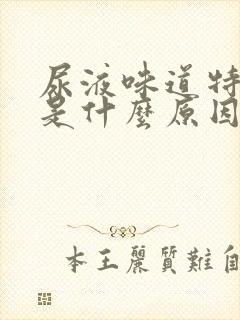 尿液味道特
是什麼原因
本王麗質難自